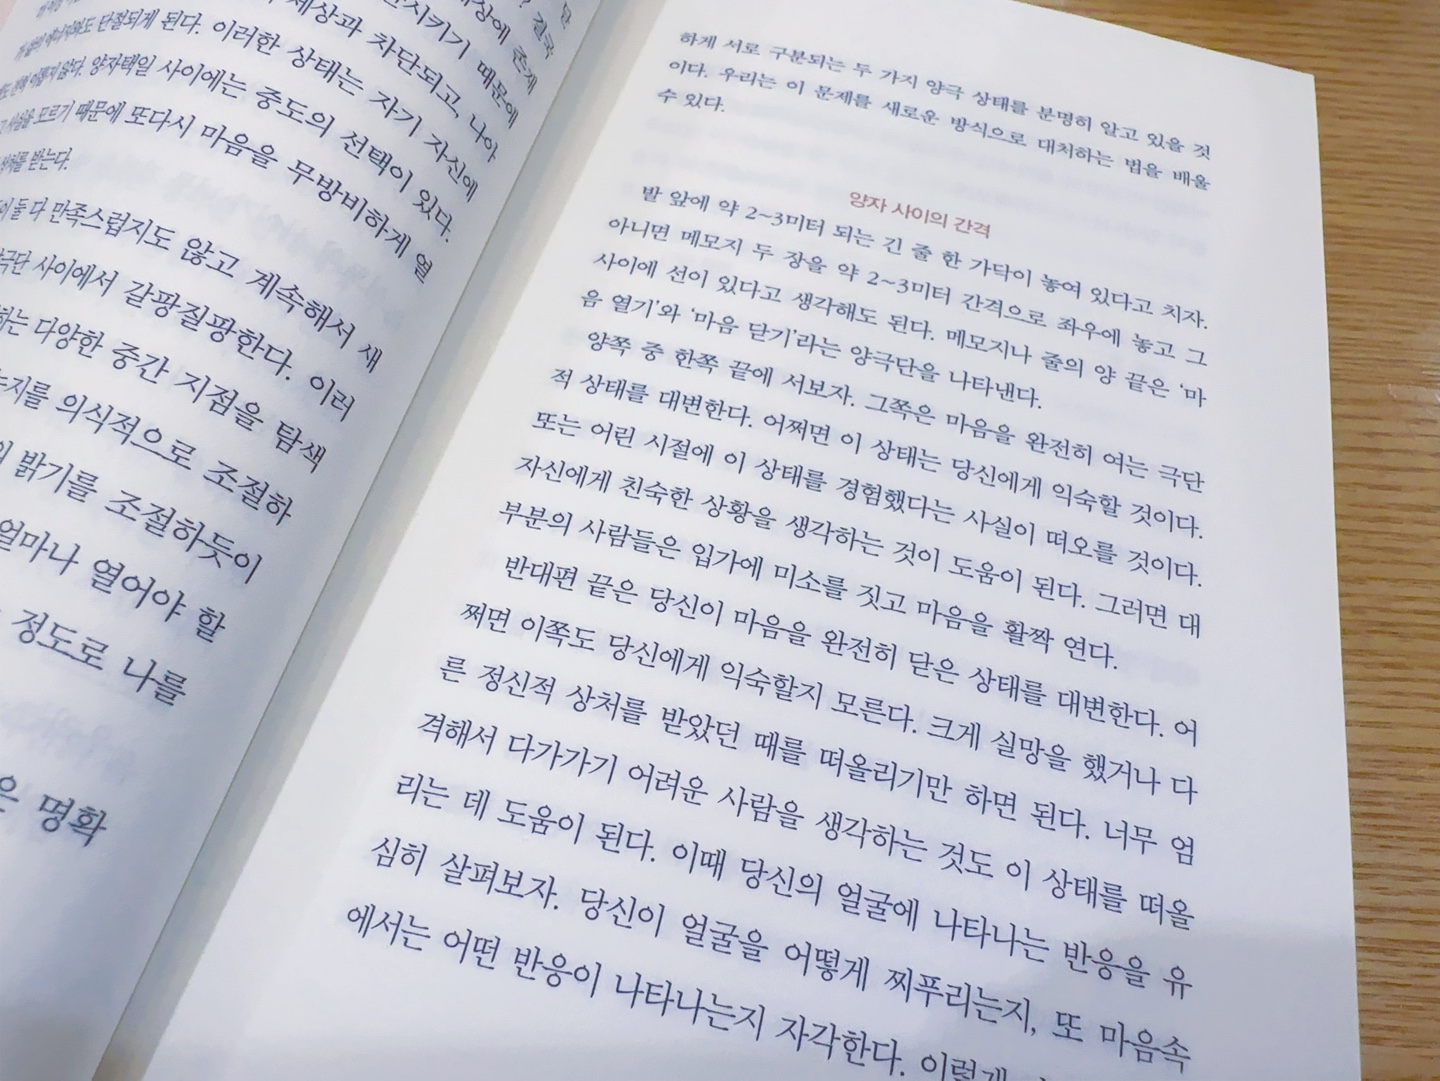 세상에 존재
때문에
세상과 차단되고, 나아
단절되게 된다. 이러한 상태는 자기 자신에
않다. 양자택일 사이에는 중도의 선택이 있다.
모르기 때문에 또다시 마음을 무방비하게 열
받는다.
둘 다 만족스럽지도 않고, 계속해서 새
사이에서 갈팡질팡한다. 이러
다양한 중간 지점을 탐색
의식적으로 조절하
밝기를 조절하듯이
얼마나 열어야 할
정도로 나를
명확
하게 서로 구분되는 두 가지 양극 상태를 분명히 알고 있을 것
이다. 우리는 이 문제를 새로운 방식으로 대처하는 법을 배울
수 있다.
양자 사이의 간격
발 앞에 약 2~3미터 되는 긴 줄 한 가닥이 놓여 있다고 치자.
아니면 메모지 두 장을 약 2~3미터 간격으로 좌우에 놓고 그
사이에 선이 있다고 생각해도 된다. 메모지나 줄의 양 끝은 ‘마
음 열기’와 ‘마음 닫기’라는 양극단을 나타낸다.
양쪽 중 한쪽 끝에 서보자. 그쪽은 마음을 완전히 여는 극단
적 상태를 대변한다. 어쩌면 이 상태는 당신에게 익숙할 것이다.
또는 어린 시절에 이 상태를 경험했다는 사실이 떠오를 것이다.
자신에게 친숙한 상황을 생각하는 것이 도움이 된다. 그러면 대
부분의 사람들은 입가에 미소를 짓고 마음을 활짝 연다.
반대편 끝은 당신이 마음을 완전히 닫은 상태를 대변한다. 어
쩌면 이쪽도 당신에게 익숙할지 모른다. 크게 실망을 했거나 다
른 정신적 상처를 받았던 때를 떠올리기만 하면 된다. 너무 엄
격해서 다가가기 어려운 사람을 생각하는 것도 이 상태를 떠올
리는 데 도움이 된다. 이때 당신의 얼굴에 나타나는 반응을 유
심히 살펴보자. 당신이 얼굴을 어떻게 찌푸리는지, 또 마음속
에서는 어떤 반응이 나타나는지 자각한다. 이렇게